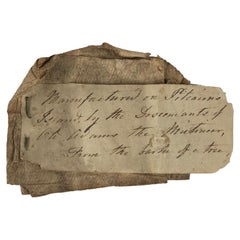 Manufactured on Pitcairns
Island, by the Descendants of
Adams the Mutineer,
From the bark of a tree